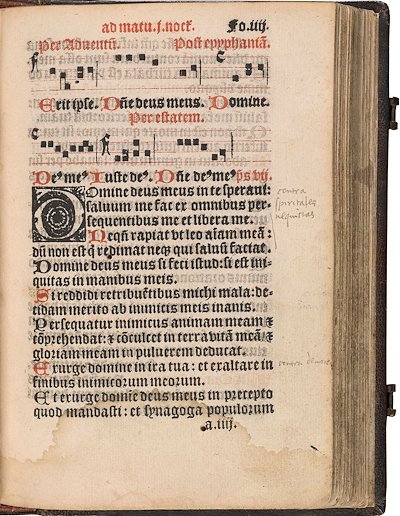 ad matu. j. noct. Fo. iiij.
Per Adventū. Post epyphaniā.
Erit ipse. Dñe deus meus. Domine.
Per estatem.
Deꝰ meꝰ Iuste deꝰ. Dñe deꝰ meꝰ ps vij.
Domine deus meus in te speraui:
saluum me fac ex omnibus per-
sequentibus me et libera me.
Neqñ rapiat vt leo aīam meā:
dū non est q̇ redimat neqꝫ qui saluū faciat.
Domine deus meus si feci istud: si est ini-
quitas in manibus meis.
Si reddidi retribuētibus michi mala: de-
cidam merito ab inimicis meis inanis.
Persequatur inimicus animam meam ⁊
cōprehendat: ⁊ cōculcet in terra vitā meā ⁊
gloriam meam in puluerem deducat.
Exurge domine in ira tua: et exaltare in
finibus inimicorum meorum.
Et exurge domīe deus meus in precepto
quod mandasti: et synagoga populorum
a. iiij.
contra
spiritales
nequitias
contra